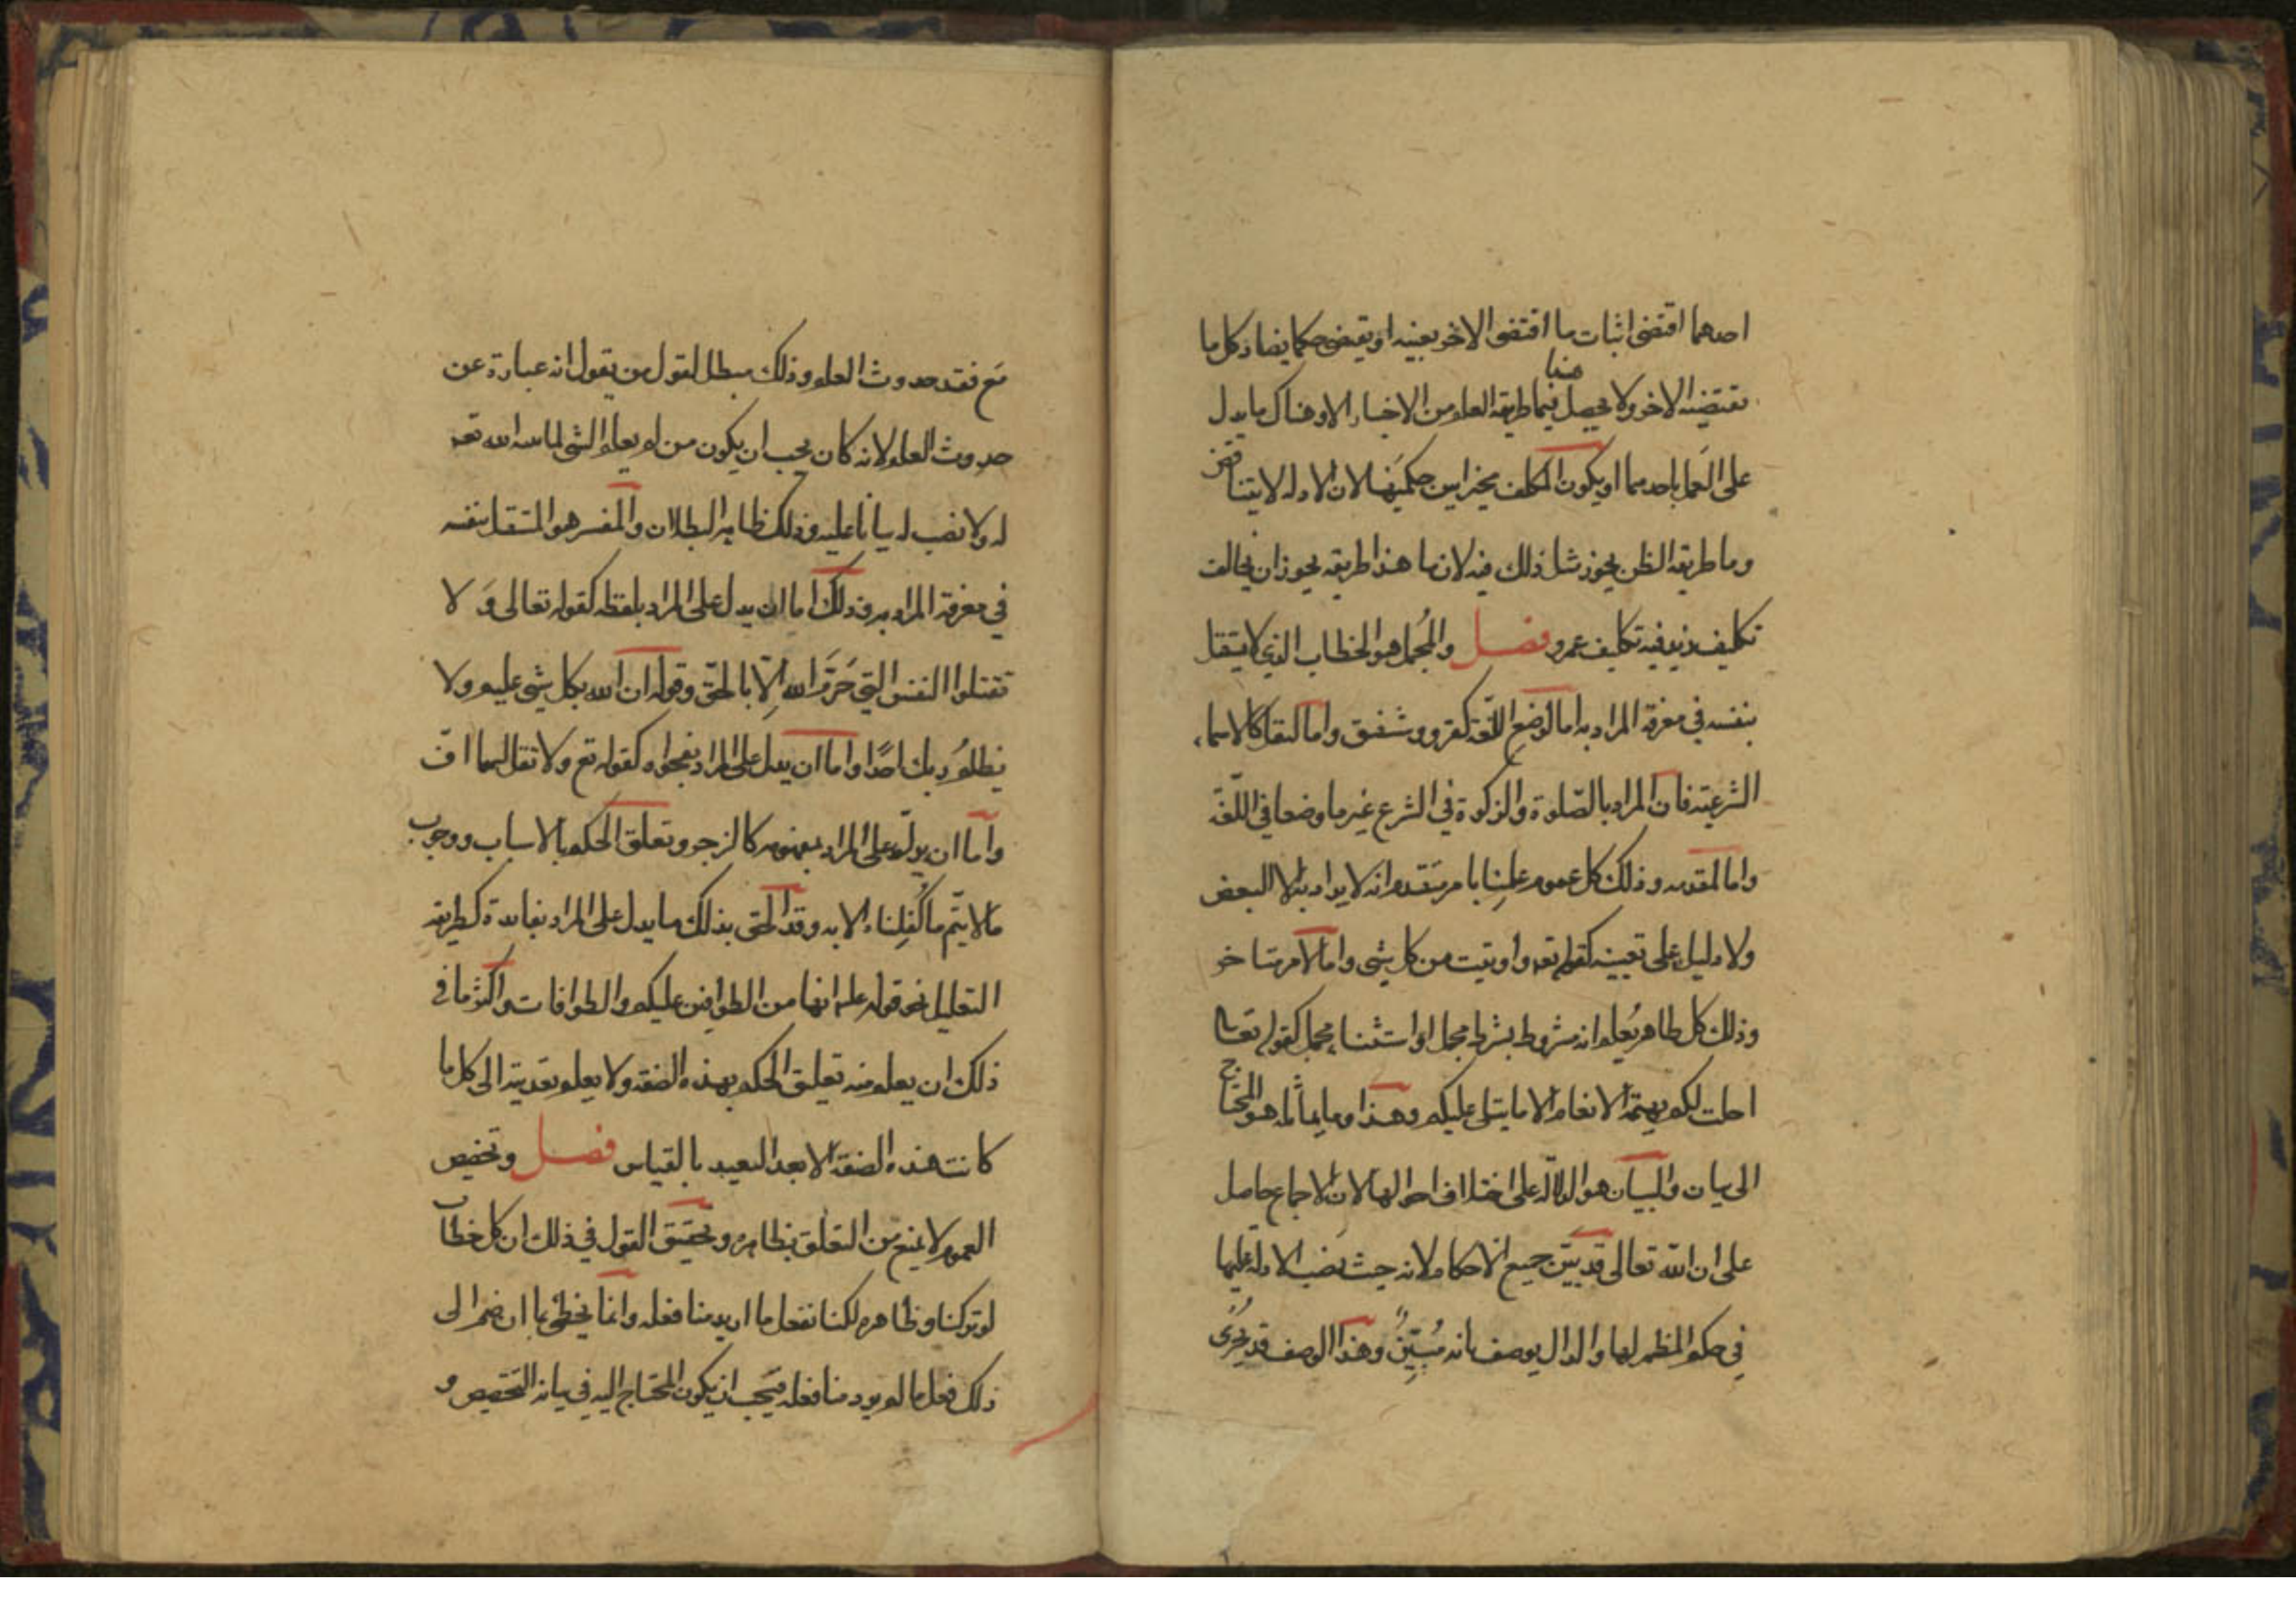 احدهما اقتضى اثبات ما اقتضى الاخر بعينه او يقتضى حكما يضاد كل ما
يقتضيه الاخر ولا يحصل فيما طريقه العلم من الاخبار الا وهناك ما يدل
منا
على العمل باحدهما او يكون المكلف مخيرا بين حكميهما لان الادلة لا يتناقض
وما طريقه الظن يجوز مثل ذلك فيه لان ما هذا طريقه يجوز ان يخالف
تكليف زيد فيه تكليف عمرو فصل والمجمل هو الخطاب الذي لا يستقل
بنفسه في معرفة المراد به اما لوضع اللّغة كقرو وشفق واما لنقل كالاسماء
الشرعية فان المراد بالصّلوة والزكوة في الشرع غير ما وضعا في اللّغة
واما لمقدمه وذلك كل عموم علمنا بامر متقدم انه لا يراد به الا البعض
ولا دليل على تعيينه كقوله تعه واوتيت من كل شي واما لامر متاخر
وذلك كل ظاهر يُعلم انه مشروط بشرط مجمل او استثناء مجمل كقوله تعالى
احلت لكم بهيمة الانعام الا ما يتلى عليكم وهذا وما يماثله هو المحتاج
الى بيان والبيان هو الدلالة على اختلاف احوالها لان الاجماع حاصل
على ان اللّه تعالى قد بيّن جميع الاحكام لانه حيث نصب الادلة عليها
في حكم المظهر لها والدال يوصف بانه مُبَيِّنٌ وهذا الوصف قد يجرى
مَع فقد حدوث العلم وذلك مبطل لقول من يقول انه عبارة عن
حدوث العلم لانه كان يجب ان يكون من لم يعلم الشي لما بينه الله تعه
له ولا نصب له بيانا عليه وذلك ظاهر البطلان والمفسر هو المستقل بنفسه
في معرفة المراد به وذلك اما ان يدل على المراد بلفظه كقوله تعالى وَلا
تقتلوا النفس التي حَرَّمَ الله اِلّا بالحقّ وقوله ان الله بكل شي عليم ولا
يظلمُ ربك احدًا واما ان يدل على المراد بفحواه كقوله تع ولا تقل لهما افّ
واما ان يدلّ على المراد بمفهومه كالزجر وتعلق الحكم بالاسباب ووجوب
ما لا يتّم ما كُلِفناه الا به وقد الحق بذلك ما يدل على المراد بفايدة كطريقه
التعليل نحو قوله علم انها من الطوافين عليكم والطوافات واكثر ما في
ذلك ان يعلم منه تعليق الحكم بهذه الصفة ولا يعلم تعديته الى كل ما
كانت هذه الصفة الا بعد التعبد بالقياس فصل وتخصيص
العموم لا يمنع من التعلق بظاهره وتحقيق القول في ذلك ان كل خطاب
لو تركنا وظاهره لكنا نفعل ما اريد منا فعله وانما يخطى بما ان ضم الى
ذلك فعل ما لم يرد منا فعله فيجب ان يكون المحتاج اليه في بيانه التخصيص و